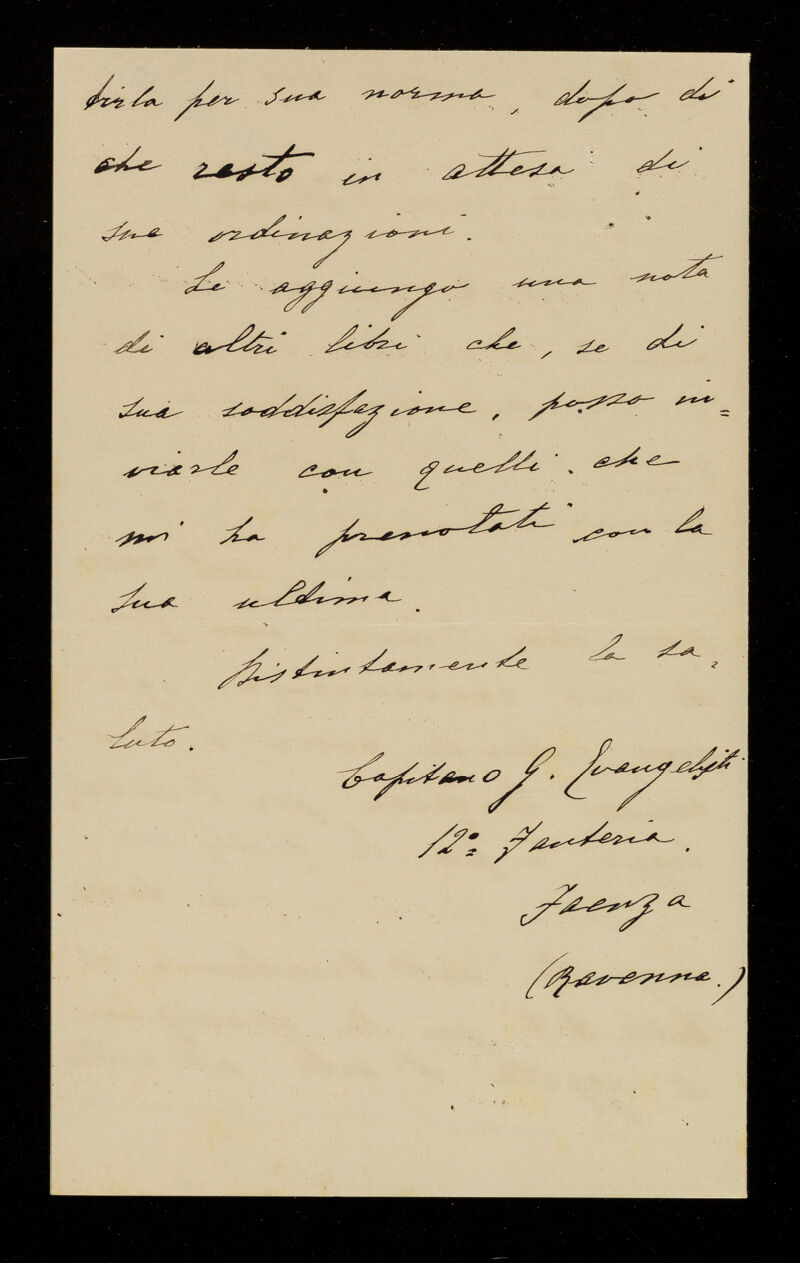 tirla per sua norma, dopo di
che resto in attesa di
sue ordinazioni.
Le aggiungo una nota
di altri libri che, se di
sua soddisfazione, posso in=
viarle con quelli che
mi ha prenotati con la
sua ultima.
Distintamente la sa-
luto.
Capitano G. Evangelisti
12º Fanteria.
Faenza
(Ravenna.)